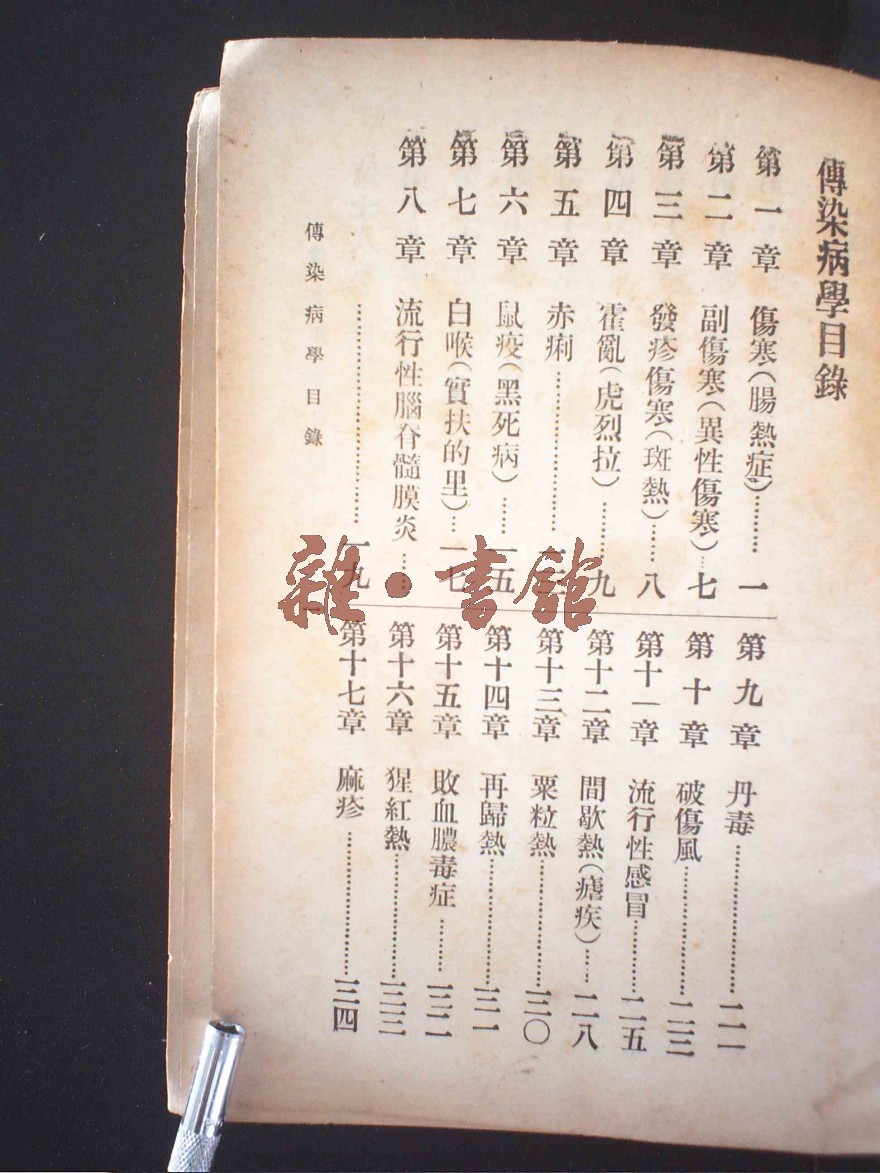 傳染病學目錄
第一章 傷寒(腸熱症)………一
第二章 副傷寒(異性傷寒)…七
第三章 發疹傷寒(斑熱)……八
第四章 霍亂(虎烈拉)………九
第五章 赤痢
第六章 鼠疫(黑死病)……一五
第七章 白喉(實扶的里)…一七
第八章 流行性腦脊髓膜炎……
……………………一九
第九章 丹毒……………………二一
第十章 破傷風………………二三
第十一章 流行性感冒…………二五
第十二章 間歇熱(瘧疾)…二八
第十三章 粟粒熱………………三〇
第十四章 再歸熱………………三一
第十五章 敗血膿毒症………三二
第十六章 猩紅熱………………三三
第十七章 麻疹…………………三四
傳染病學目錄
一
雜·書館